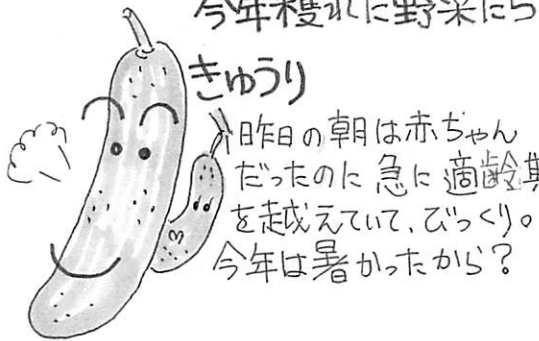 今年穫れた野菜たち
きゅうり
昨日の朝は赤ちゃん
だったのに急に適齢期
を越えていて、びっくり。
今年は暑かったから?